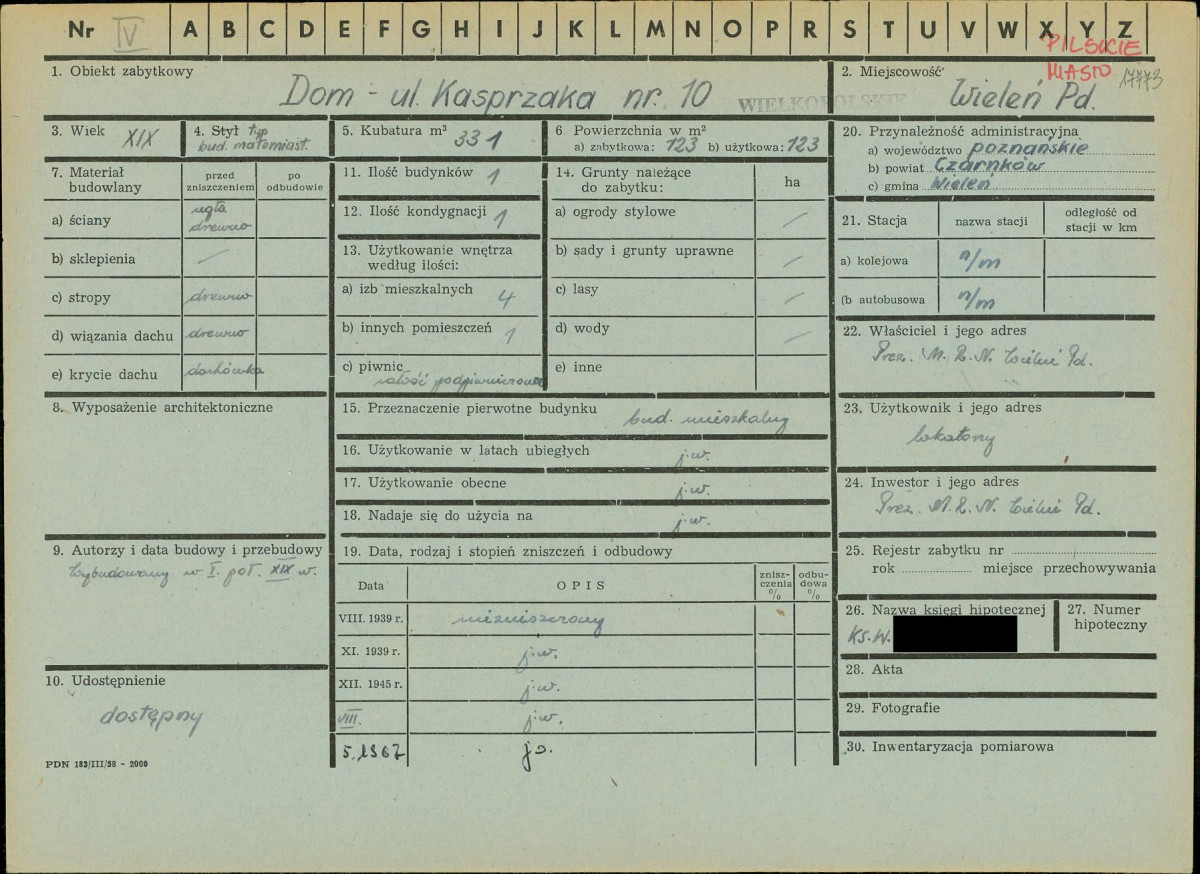 Nr IV A B C D E F G H I J K L M N O P R S T U V W X Y Z
PILSKIE
MIASTO 17773
1. Obiekt zabytkowy
Dom - ul. Kasprzaka nr. 10
WIELKOPOLSKIE
2. Miejscowość
Wieleń Pd.
3. Wiek XIX
4. Styl typ
bud. małomiast.
5. Kubatura m³ 331
6 Powierzchnia w m²
a) zabytkowa: 123 b) użytkowa: 123
20. Przynależność administracyjna
a) województwo poznańskie
b) powiat Czarnków
c) gmina Wieleń
7. Materiał budowlany
przed zniszczeniem
po odbudowie
a) ściany
cegła
drewno
b) sklepienia —
c) stropy drewno
d) wiązania dachu drewno
e) krycie dachu dachówka
11. Ilość budynków 1
12. Ilość kondygnacji 1
13. Użytkowanie wnętrza
według ilości:
a) izb mieszkalnych 4
b) innych pomieszczeń 1
c) piwnic
całość podpiwniczona
14. Grunty należące
do zabytku:
ha
a) ogrody stylowe /
b) sady i grunty uprawne /
c) lasy /
d) wody /
e) inne
21. Stacja
nazwa stacji
odległość od
stacji w km
a) kolejowa n/m
(b autobusowa n/m
22. Właściciel i jego adres
Prez. M.R.N. Wieleń Pd.
8. Wyposażenie architektoniczne
15. Przeznaczenie pierwotne budynku bud. mieszkalny
16. Użytkowanie w latach ubiegłych j.w.
17. Użytkowanie obecne j.w.
18. Nadaje się do użycia na j.w.
23. Użytkownik i jego adres
lokatorzy
24. Inwestor i jego adres
Prez. M.R.N. Wieleń Pd.
9. Autorzy i data budowy i przebudowy
Wybudowany w I. poł. XIX w.
10. Udostępnienie
dostępny
19. Data, rodzaj i stopień zniszczeń i odbudowy
Data
OPIS
znisz-
czenia
%
odbu-
dowa
%
VIII. 1939 r. niezniszczony
XI. 1939 r. j.w.
XII. 1945 r. j.w.
VIII. j.w.
5.1967 j.w.
25. Rejestr zabytku nr
rok miejsce przechowywania
26. Nazwa księgi hipotecznej
Ks.W.
27. Numer
hipoteczny
28. Akta
29. Fotografie
30. Inwentaryzacja pomiarowa
PDN 183/III/58 - 2000